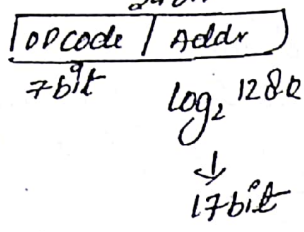 OPcode Addr
7bit log₂ 128k
↓
17bit